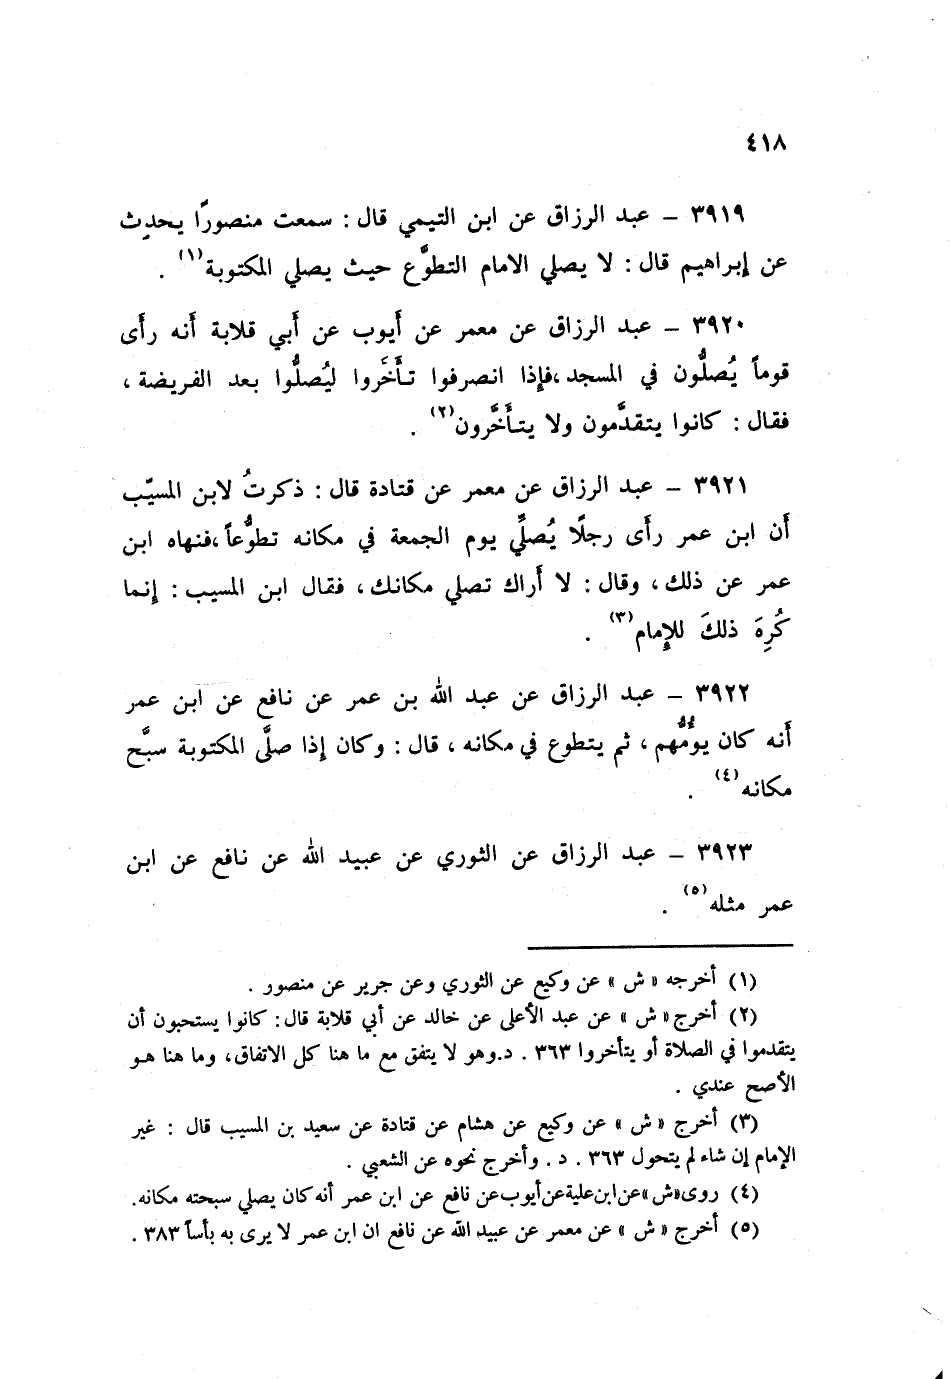 ٤١٨
٣٩١٩ – عبد الرزاق عن ابن التيمي قال : سمعت منصورًا يحدث
عن إبراهيم قال : لا يصلي الامام التطوَّع حيث يصلي المكتوبة(١) .
٣٩٢٠ – عبد الرزاق عن معمر عن أَيوب عن أَبي قلابة أَنه رأَى
قوماً يُصلُّون في المسجد ،فإذا انصرفوا تأَخَّروا ليُصلُّوا بعد الفريضة ،
فقال : كانوا يتقدَّمون ولا يتأَخَّرون(٢) .
٣٩٢١ – عبد الرزاق عن معمر عن قتادة قال : ذكرتُ لابن المسيّب
أَن ابن عمر رأَى رجلًا يُصلِّي يوم الجمعة في مكانه تطوُّعاً ،فنهاه ابن
عمر عن ذلك ، وقال : لا أَراك تصلي مكانك ، فقال ابن المسيب : إنما
كُرِهَ ذلكَ للإمام(٣) .
٣٩٢٢ – عبد الرزاق عن عبد الله بن عمر عن نافع عن ابن عمر
أَنه كان يؤمُّهم ، ثم يتطوع في مكانه ، قال : وكان إذا صلَّى المكتوبة سبَّح
مكانه(٤) .
٣٩٢٣ – عبد الرزاق عن الثوري عن عبيد الله عن نافع عن ابن
عمر مثله(٥) .
(١) أخرجه «ش» عن وكيع عن الثوري وعن جرير عن منصور .
(٢) أخرج «ش» عن عبد الأعلى عن خالد عن أبي قلابة قال: كانوا يستحبون أن
يتقدموا في الصلاة أو يتأخروا ٣٦٣ . د.وهو لا يتفق مع ما هنا كل الاتفاق، وما هنا هو
الأصح عندي .
(٣) أخرج «ش» عن وكيع عن هشام عن قتادة عن سعيد بن المسيب قال : غير
الإمام إن شاء لم يتحول ٣٦٣ . د . وأخرج نحوه عن الشعبي .
(٤) روى«ش»عن ابن علية عن أيوب عن نافع عن ابن عمر أنه كان يصلي سبحته مكانه.
(٥) أخرج «ش» عن معمر عن عبيد الله عن نافع ان ابن عمر لا يرى به بأساً ٣٨٣ .